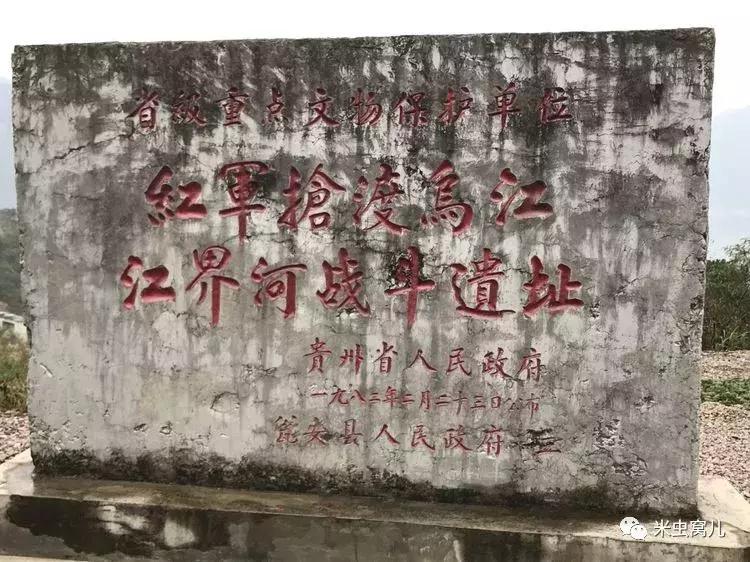 省級重点文物保护单位
紅軍搶渡烏江
江界河战斗遺址
贵州省人民政府
一九八二年二月二十三日公布
瓮安县人民政府立
米虫窝儿